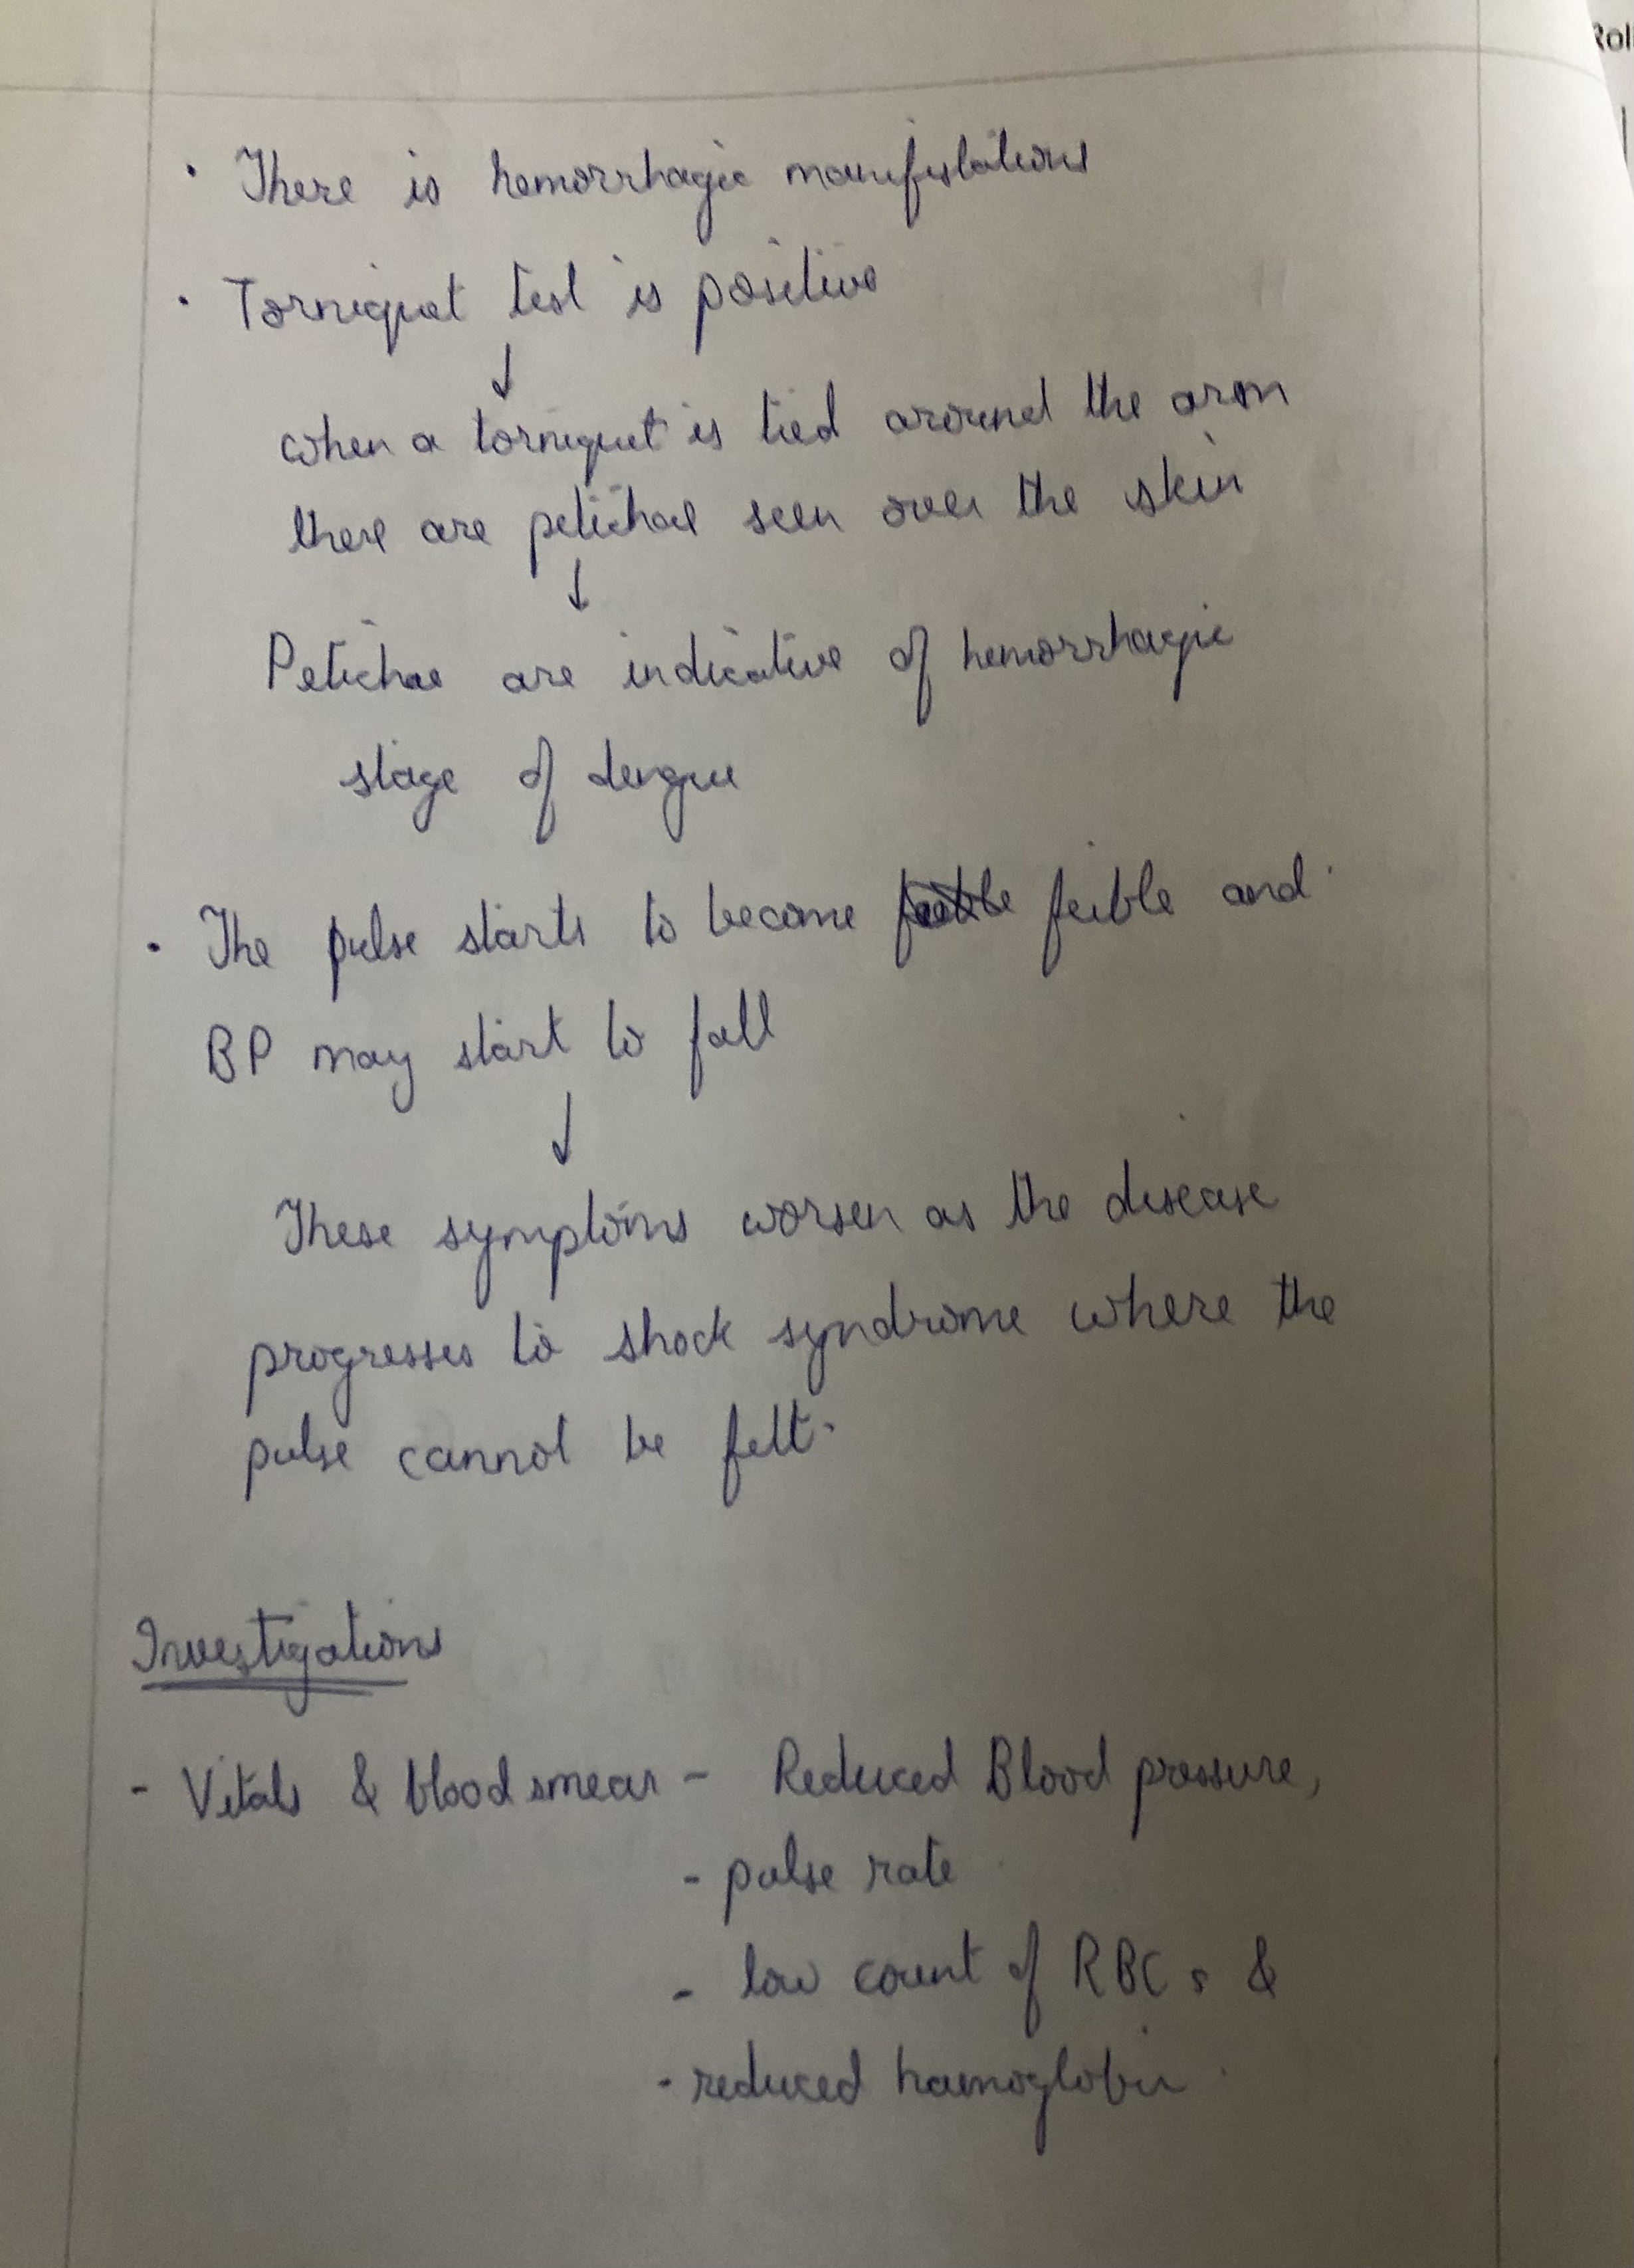 Rol
· There is hemorrhagic manifestations
· Torniquet test is positive
↓
when a torniquet is tied around the arm
there are petichae seen over the skin
↓
Petichae are indicative of hemorrhagic
stage of dengue
· The pulse starts to become feible and
BP may start to fall
↓
These symptoms worsen as the disease
progresses to shock syndrome where the
pulse cannot be felt.
Investigations
- Vitals & blood smear - Reduced Blood pressure,
- pulse rate
- low count of RBCs &
- reduced haemoglobin.